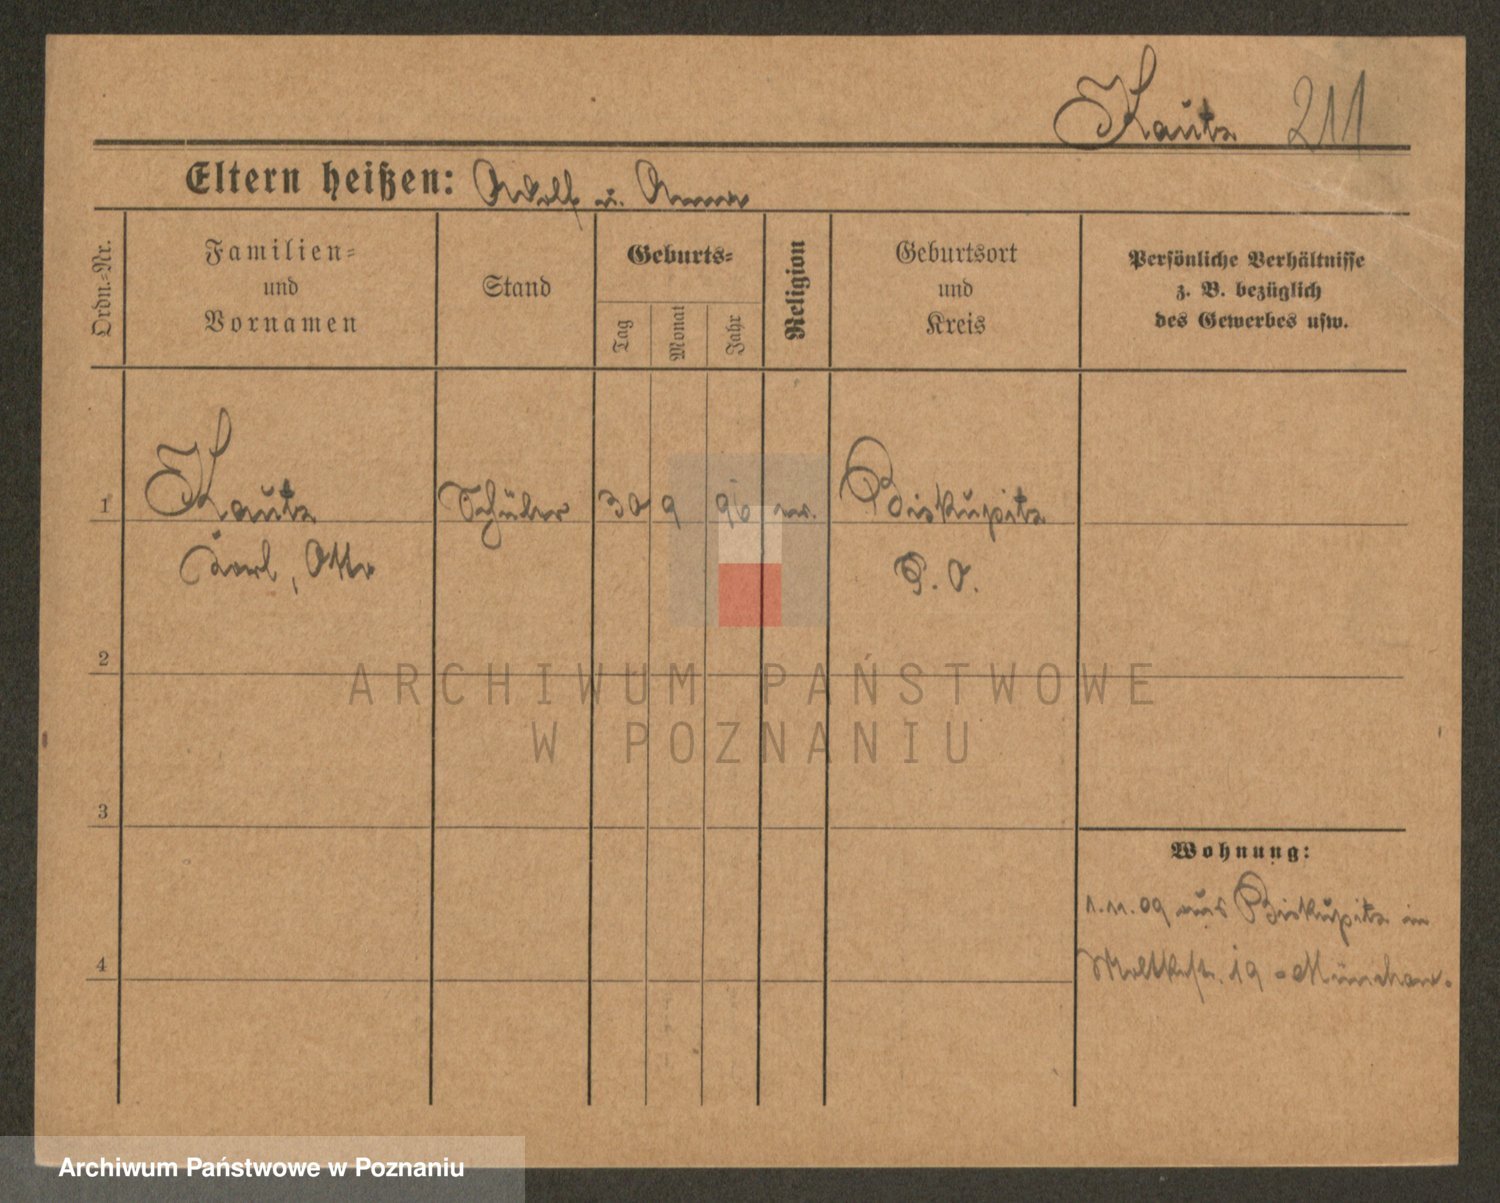 Kautz 211
Eltern heißen: Adolf u. Anna
Ordn.-Nr.
Familien-
und
Vornamen
Stand
Geburts-
Tag
Monat
Jahr
Religion
Geburtsort
und
Kreis
Persönliche Verhältnisse
z. B. bezüglich
des Gewerbes usw.
1 Kautz Schüler 30 9 96 ev. Biskupitz
Karl, Otto P. O.
2
3
4
Wohnung:
1.11.09 aus Biskupitz in
Moltkestr. 19 München.
ARCHIWUM PAŃSTWOWE
W POZNANIU
Archiwum Państwowe w Poznaniu